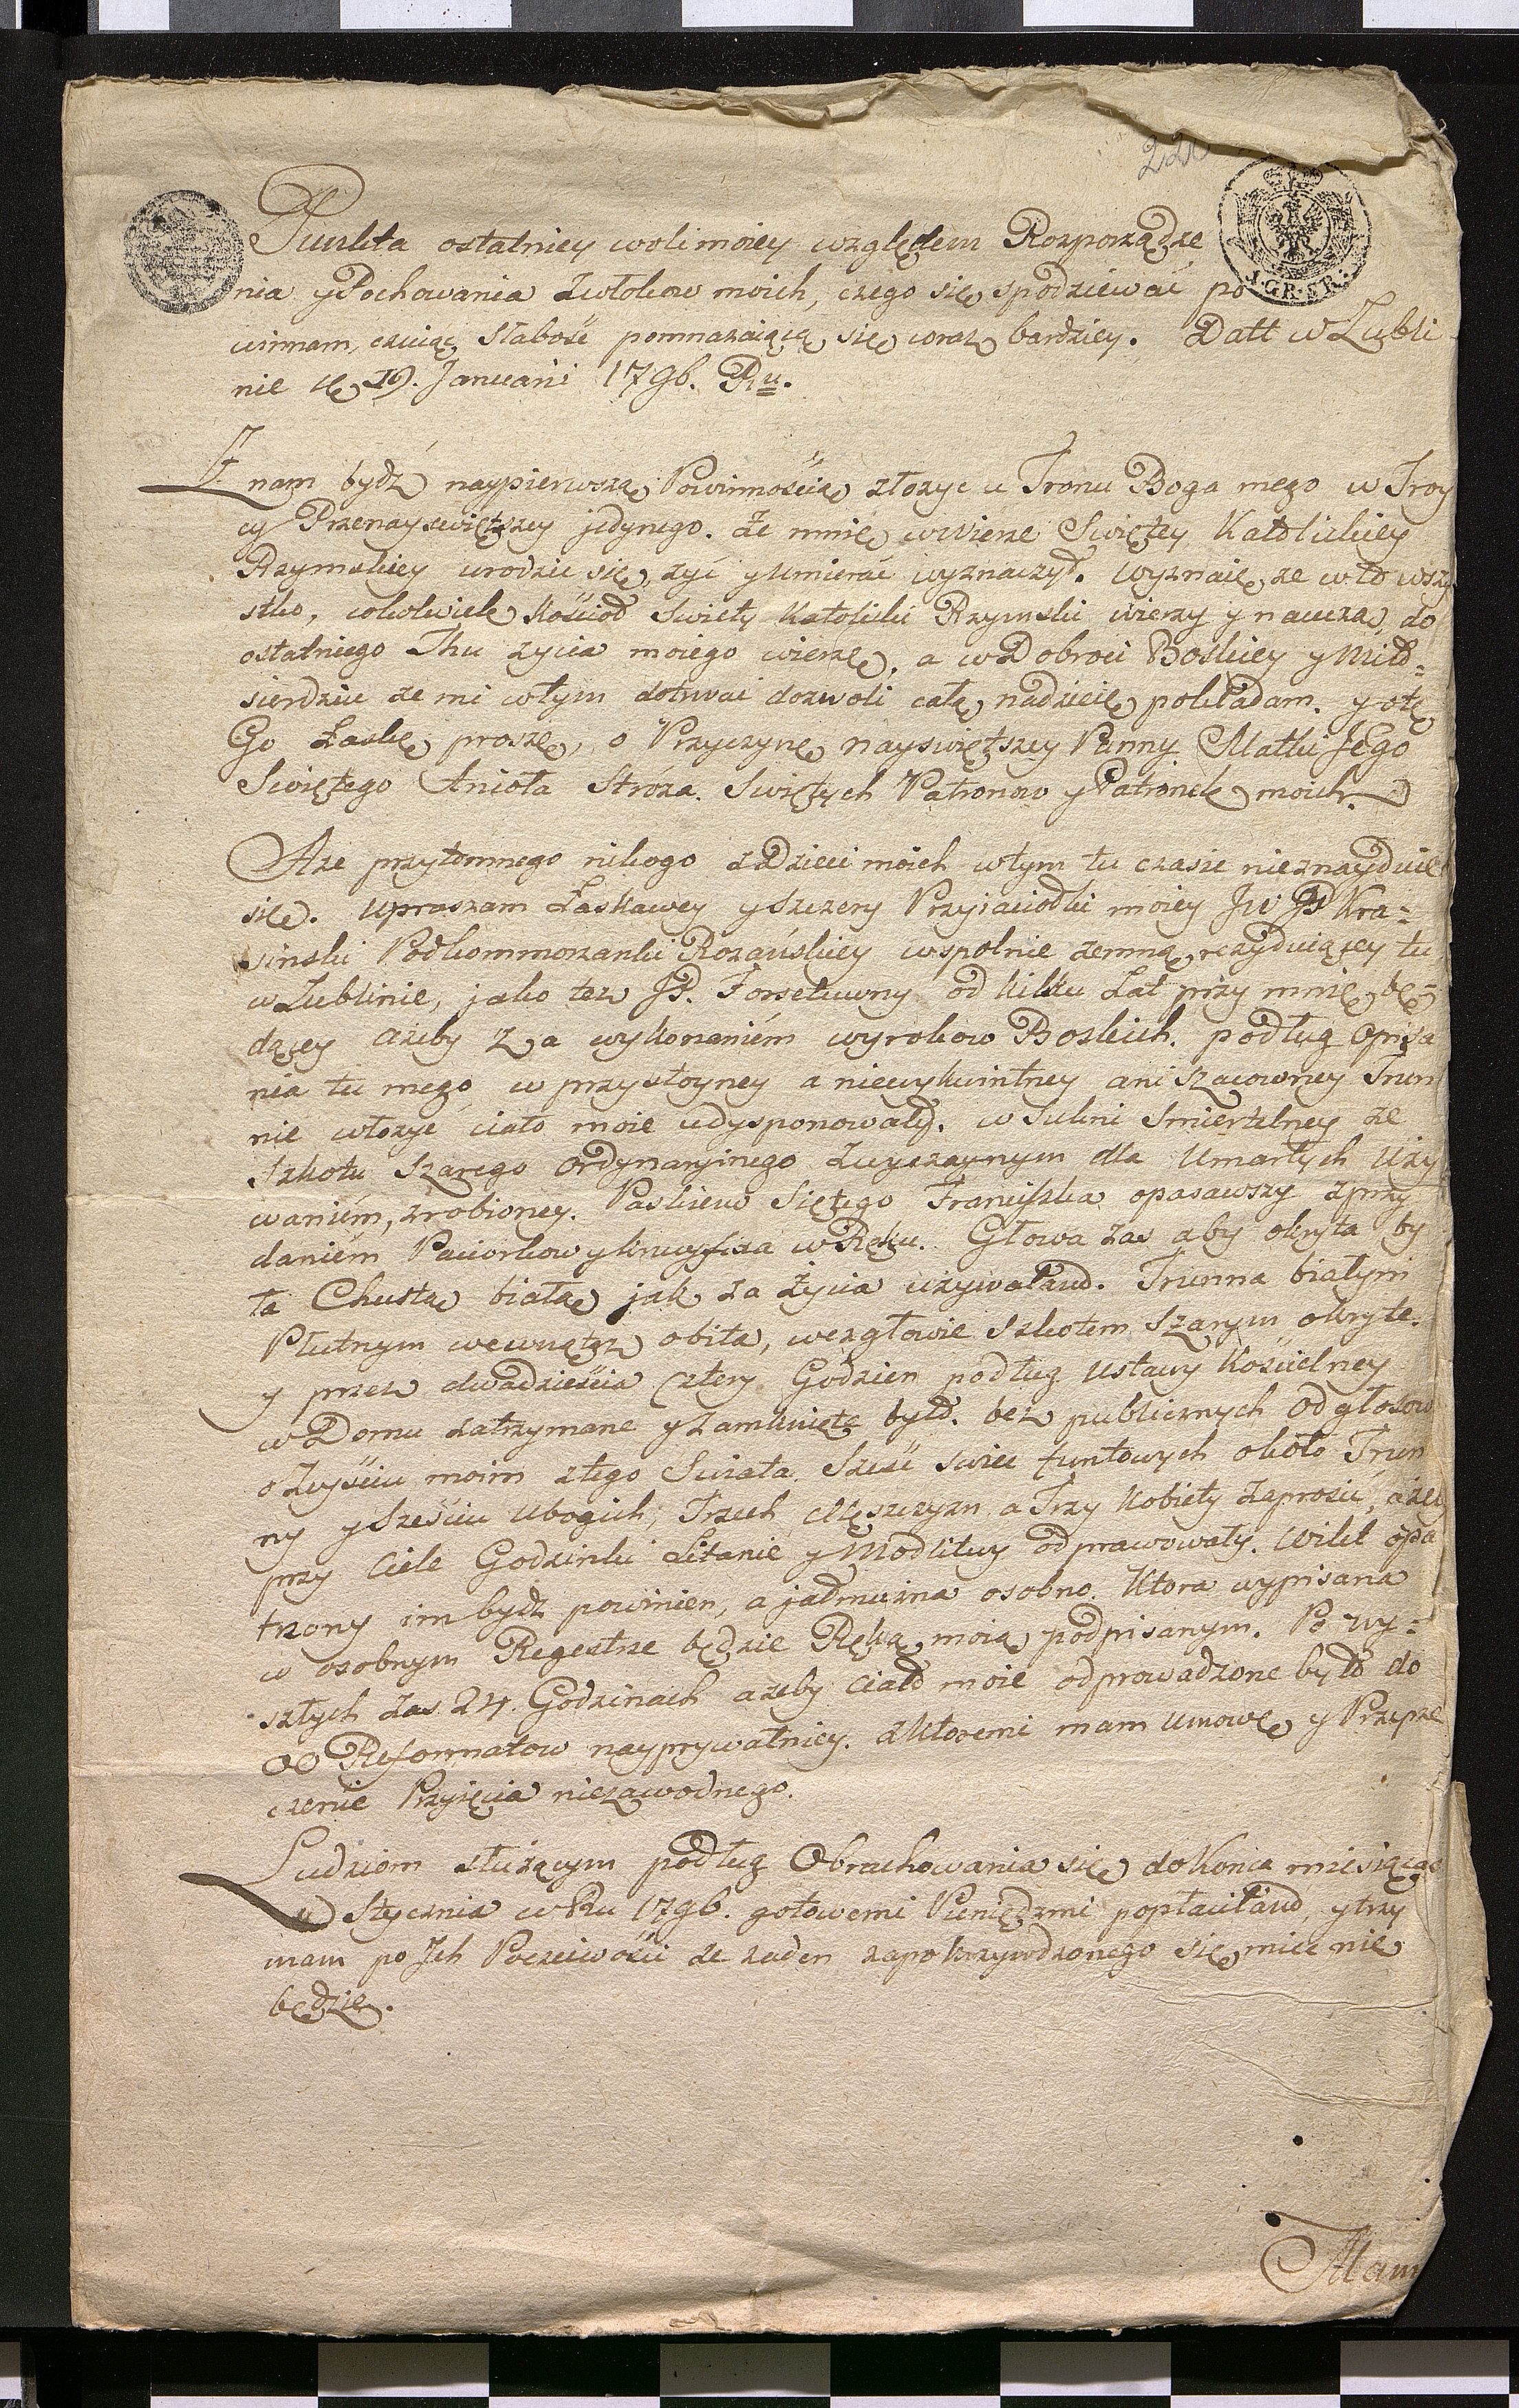 Punkta ostatniey woli moiey względem Rozporządze
nia y Pochowania Zwłokow moich, czego się spodziewać po
winnam, czuiąc słabość pomnażaiącą się coraz bardziey. Datt w Lubli
nie d. 19. Januarii 1796. Ru.
X. GR. ST. P.
Znam bydź naypierwszą Powinnością złożyć u Tronu Boga mego w Troy
cy Przenayswiętszey jedynego. że mnie w Wierze Swiętey Katolickiey
Rzymskiey urodzić się, żyć y umierać wyznaczył. Wyznaię, że w to wszy
stko, cokolwiek Kościoł Swięty Katolicki Rzymski wierzy y naucza, do
ostatniego Thu życia moiego wierzę. a w Dobroci Boskiey y Miło-
sierdziu że mi w tym dotrwać dozwoli całą nadzieię pokładam. y o tę
Go Łaskę proszę, o Przyczynę nayswiętszey Panny Matki Jego
Swiętego Anioła Stroża. Swiętych Patronow y Patronek moich.
A że przytomnego nikogo z Dzieci moich w tym tu czasie nieznayduie
się. upraszam Łaskawey y szczery Przyiaciołki moiey JW JP Kra-
sinski Podkommorzanki Rozańskiey wspolnie zemną rezyduiącey tu
w Lublinie, jako też JP. Forsetuwny od kilku Lat przy mnie bę-
dącey ażeby Za wykonaniém wyrokow Boskich. podług opisa
nia tu mego w przystoyney a niewykwintney ani szacowney Trun
nie włożyć ciało moie udysponowały. w sukni smiertelney ze
szkotu szarego ordynaryinego zwyczaynym dla Umarłych uży
waniém, zrobioney. Paskiem Siętego Franciszka opasawszy z przy
daniém Paciorkow y krucyfixa w Ręku. Głowa zas aby okryta by
ła Chustką białą jak za życia używałam. Trunna białym
Płutnym wewnątrz obita, wezgłowie szkotem szarym okryte.
y przez dwadzieścia cztery Godzien podług Ustawy Kościelney
w Domu zatrzymane y zamknięte było. bez publicznych odgłosow
o Zeyściu moim z tego Swiata. Sześć swiec funtowych około Trun
ny y sześciu Ubogich, Trzech Męszczyzn a Trzy Kobiety zaprosić, ażeby
przy Ciele Godzinki Litanie y Modlitwy odprawowały. Wikt opa
trzony im bydź powinien, a jałmużna osobno. Ktora wypisana
w osobnym Regestrze będzie Ręką moią podpisanym. Po wy-
szłych zas 24. Godzinach ażeby ciało moie odprowadzone było do
OO Reformatow nayprywatniey. z Ktoremi mam umowę y Przyrze
czenie Przyięcia niezawodnego.
Ludziom służącym podług Obrachowania się do Konca miesiąca
Stycznia w Ru 1796. gotowemi Pieniędzmi popłaciłam, y trzy
mam po Jch Poczciwości że żaden zapokrzywdzonego się mieć nie
będzie.
Mam